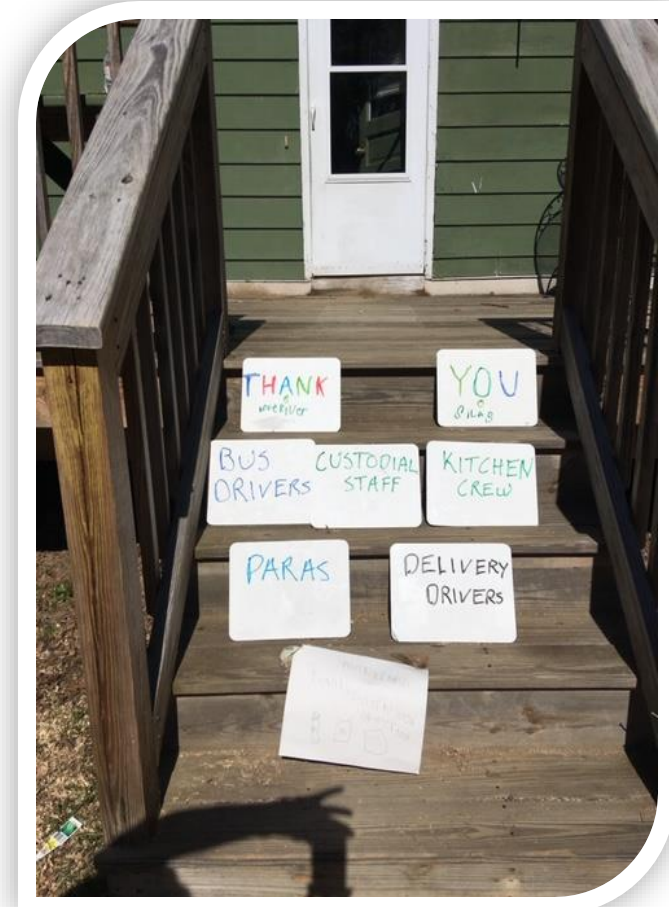 THANK
YOU
BUS
DRIVERS
CUSTODIAL
STAFF
KITCHEN
CREW
PARAS
DELIVERY
DRIVERS